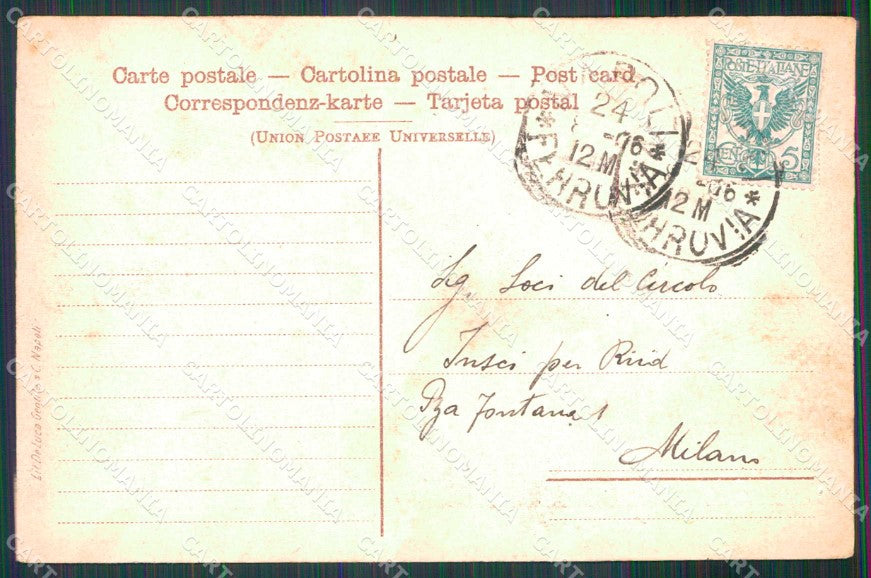 Carte postale — Cartolina postale — Post card
Correspondenz-karte — Tarjeta postal
(UNION POSTAEE UNIVERSELLE)
POSTE · ITALIANE
CENT 5
24
-06
12 M
FERROVIA *
-06
12 M
FERROVIA *
Sig. Soci del Circolo
per
Pza Fontana 1
Milano
Lit. De Luca Gentile & C. Napoli
CARTOLINOMANIA